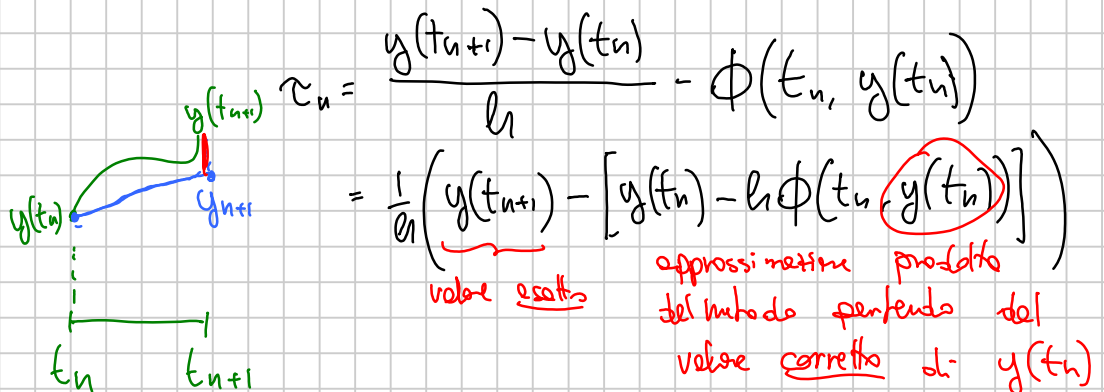 τₙ = (y(tₙ₊₁) − y(tₙ)) / h − ϕ(tₙ, y(tₙ))
y(tₙ₊₁)
= 1/h ( y(tₙ₊₁) − [ y(tₙ) − hϕ(tₙ, y(tₙ)) ] )
y(tₙ)
yₙ₊₁
valore esatto
approssimazione prodotta
dal metodo partendo dal
valore corretto di y(tₙ)
tₙ
tₙ₊₁